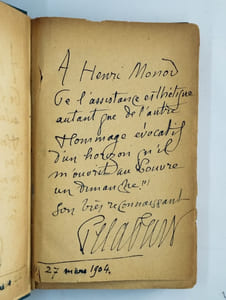 A Henri Monod
De l'assistance esthétique
autant que de l'autre
Hommage évocatif
d'un horizon qu'il
m'ouvrit au Louvre
un Dimanche
son très reconnaissant
27 mars 1904.